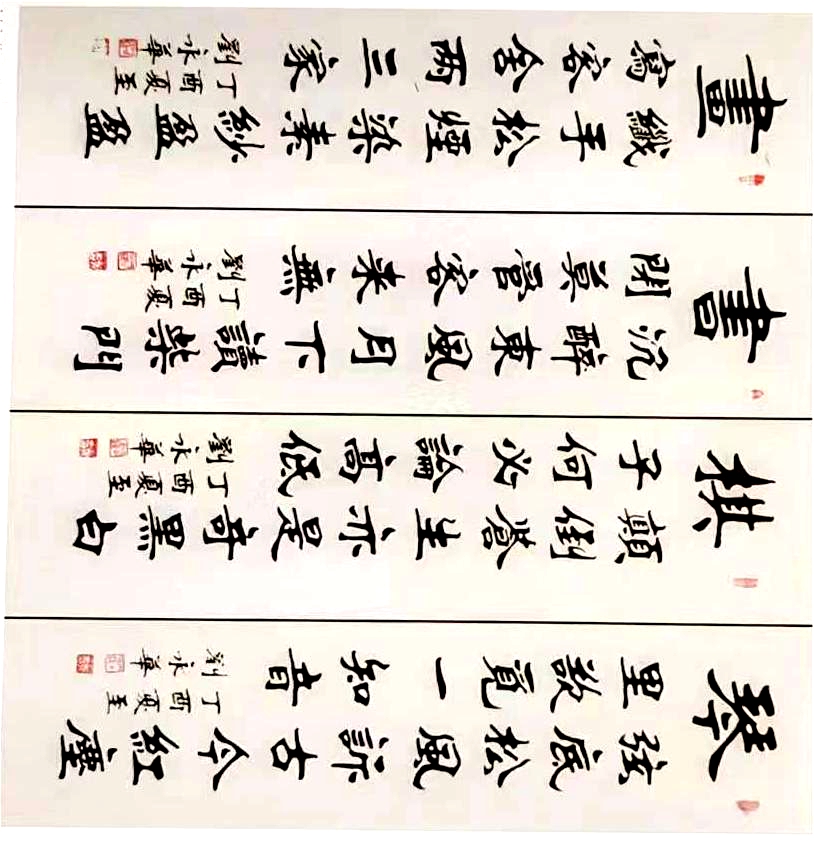 琴
弦底松風訴古今紅塵
里欲覓一知音
丁酉夏至
劉永華
棋
顛倒蒼生亦是奇黑白
子何必論高低
丁酉夏至
劉永華
書
沉醉東風月下讀柴門
閉莫管客来無
丁酉夏
劉永華
畫
纖手松煙染素紗盈盈
寫客舍两三家
丁酉夏至
劉永華